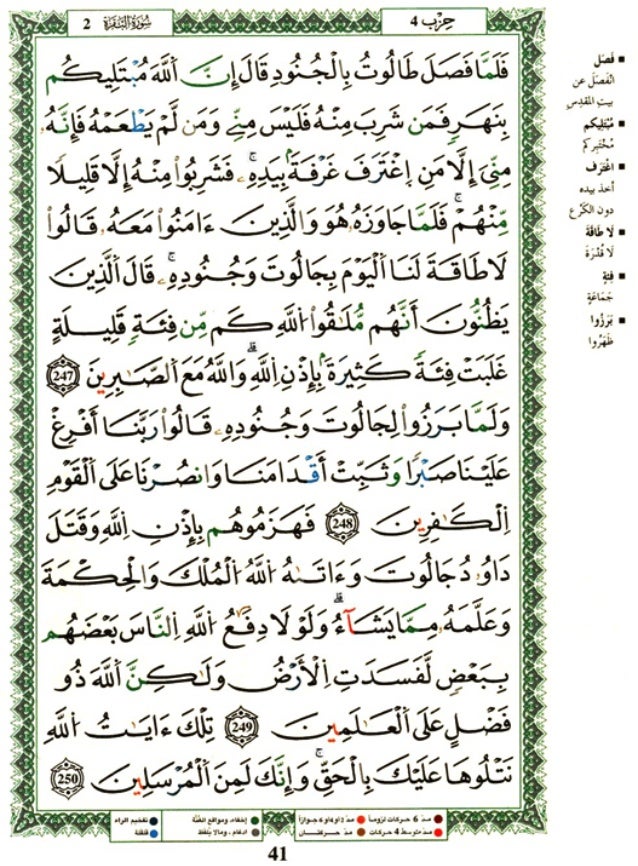 حِزْب 4
سُورَةُ الْبَقَرَة 2
فَلَمَّا فَصَلَ طَالُوتُ بِالْجُنُودِ قَالَ إِنَّ اَللَّهَ مُبْتَلِيكُم
بِنَهَرٍ فَمَن شَرِبَ مِنْهُ فَلَيْسَ مِنِّے وَمَن لَّمْ يَطْعَمْهُ فَإِنَّهُۥ
مِنِّيَ إِلَّا مَنِ اِغْتَرَفَ غَرْفَةَۢ بِيَدِهِۦ ۚ فَشَرِبُواْ مِنْهُ إِلَّا قَلِيلًا
مِّنْهُمْ ۚ فَلَمَّا جَاوَزَهُۥ هُوَ وَالَّذِينَ ءَامَنُواْ مَعَهُۥ قَالُواْ
لَا طَاقَةَ لَنَا اَلْيَوْمَ بِجَالُوتَ وَجُنُودِهِۦ ۚ قَالَ اَلَّذِينَ
يَظُنُّونَ أَنَّهُم مُّلَٰقُواْ اُللَّهِ كَم مِّن فِئَةٍ قَلِيلَةٍ
غَلَبَتْ فِئَةً كَثِيرَةَۢ بِإِذْنِ اِللَّهِ ۗ وَاللَّهُ مَعَ اَلصَّٰبِرِينَ 247
وَلَمَّا بَرَزُواْ لِجَالُوتَ وَجُنُودِهِۦ قَالُواْ رَبَّنَا أَفْرِغْ
عَلَيْنَا صَبْرًا وَثَبِّتْ أَقْدَامَنَا وَانصُرْنَا عَلَى اَلْقَوْمِ
اِلْكَٰفِرِينَ 248 فَهَزَمُوهُم بِإِذْنِ اِللَّهِ وَقَتَلَ
دَاوُۥدُ جَالُوتَ وَءَاتَىٰهُ اُللَّهُ اُلْمُلْكَ وَالْحِكْمَةَ
وَعَلَّمَهُۥ مِمَّا يَشَآءُ ۗ وَلَوْلَا دِفَٰعُ اُللَّهِ اِلنَّاسَ بَعْضَهُم
بِبَعْضٍ لَّفَسَدَتِ اِلْأَرْضُ وَلَٰكِنَّ اَللَّهَ ذُو
فَضْلٍ عَلَى اَلْعَٰلَمِينَ 249 تِلْكَ ءَايَٰتُ اُللَّهِ
نَتْلُوهَا عَلَيْكَ بِالْحَقِّ ۚ وَإِنَّكَ لَمِنَ اَلْمُرْسَلِينَ 250
■ فَصَلَ
انْفَصَلَ عن
بيتِ المَقْدِسِ
■ مُبْتَلِيكم
مُخْتَبِرُكم
■ اغْتَرَف
أخذ بيده
دون الكَرْع
■ لَا طَاقَةَ
لَا قُدْرَةَ
■ فِئَةٍ
جَمَاعَةٍ
■ بَرَزُوا
ظَهَرُوا
● مدّ 6 حركات لزوماً ● مدّ 2 أو 4 أو 6 جوازاً
● مدّ متوسط 4 حركات ● مدّ حركتان
● إخفاء، ومواقع الغُنَّة
● إدغام، وما لا يُلفَظ
● تفخيم الراء
● قلقلة
41